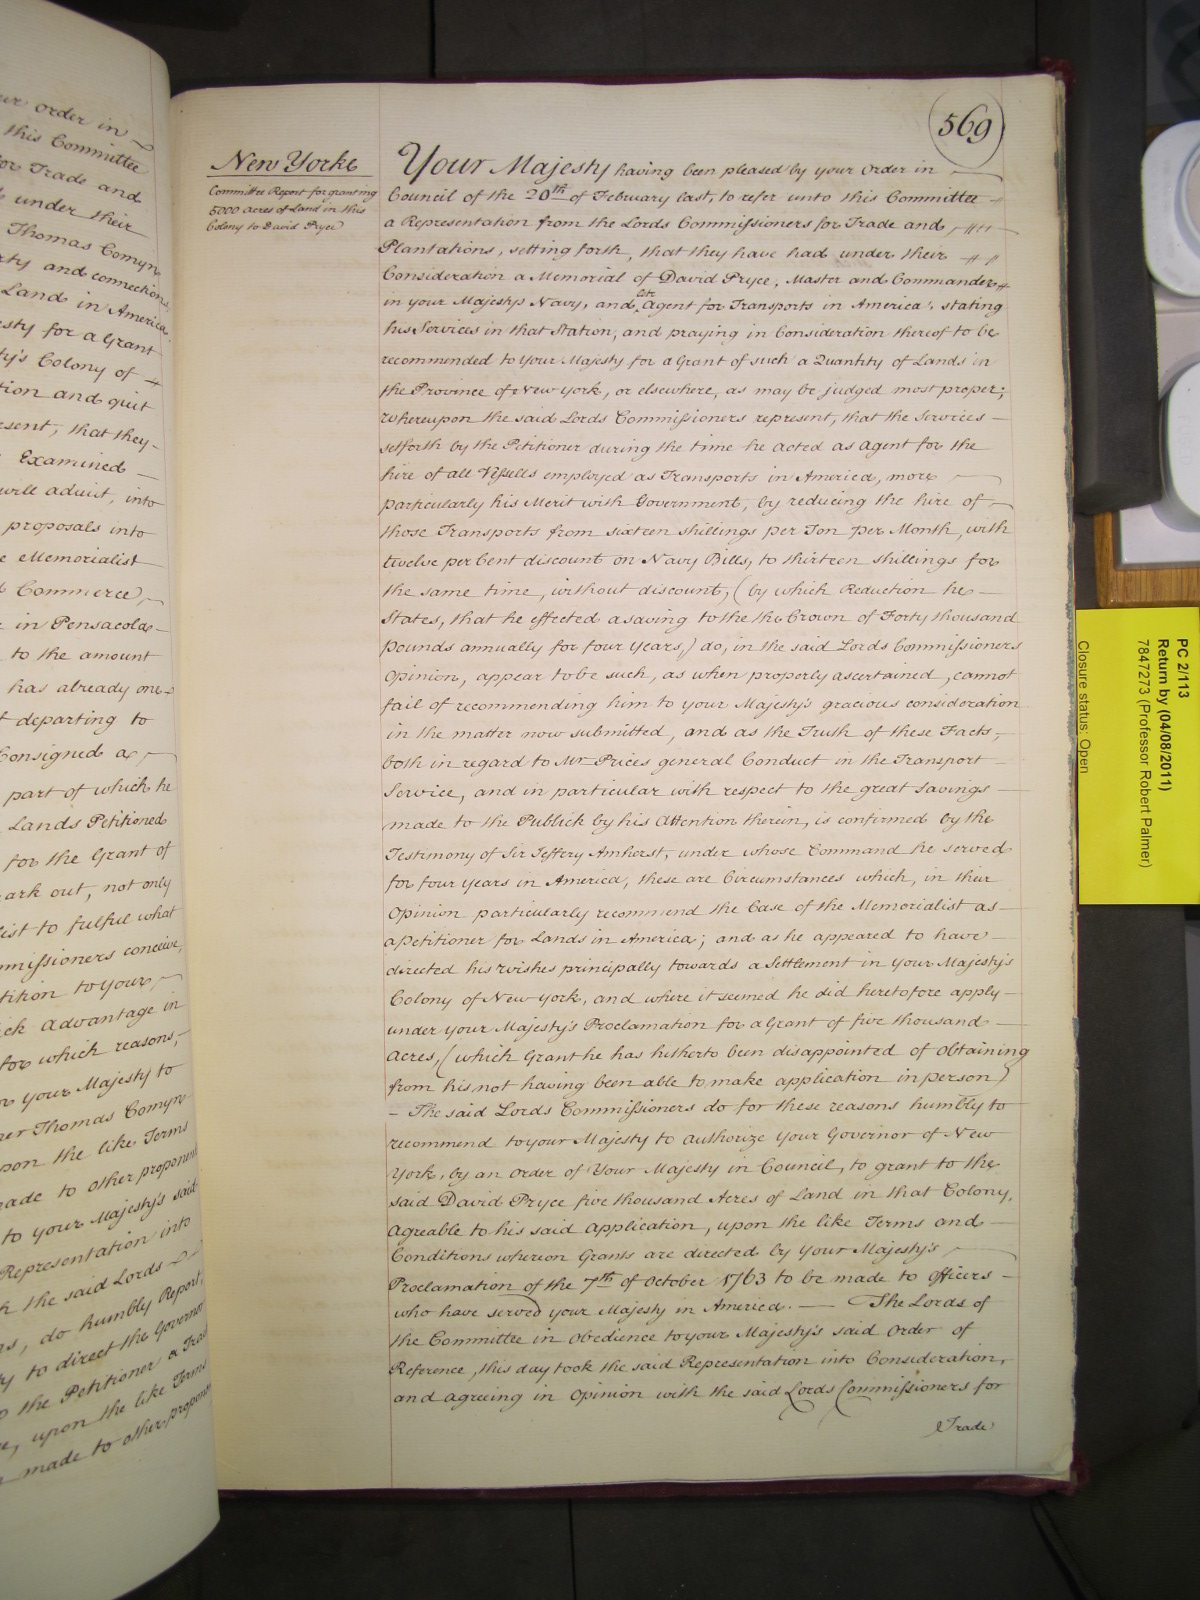 ur order in
this Committee
for Trade and
under their
Thomas Comyn
ty and connections
Land in America
sty for a Grant
ty's Colony of
tion and quit
sent, that they
Examined
will admit, into
proposals into
e Memorialist
Commerce,
in Pensacola
to the amount
has already one
departing to
Consigned as
part of which he
Lands Petitioned
for the Grant of
ark out, not only
list to fulful what
mmissioners conceive,
tition to your
ick Advantage in
for which reasons,
your Majesty to
Thomas Comyn
pon the like Terms
made to other proponent
to your Majesty's said
Representation into
the said Lords
do humbly Report,
ty to direct the Governor
the Petitioner a Tract
upon the like Terms
made to other proponent
569
New Yorke
Committee Report for granting
5000 acres of Land in this
Colony to David Pryce
Your Majesty having been pleased by your Order in
Council of the 20th of February last, to refer unto this Committee
a Representation from the Lords Commissioners for Trade and
Plantations, setting forth, that they have had under their
Consideration a Memorial of David Pryce, Master and Commander
in your Majesty's Navy, and late Agent for Transports in America, stating
his Services in that Station, and praying in Consideration thereof to be
recommended to Your Majesty for a Grant of such a Quantity of Lands in
the Province of New York, or elsewhere, as may be judged most proper;
whereupon the said Lords Commissioners represent, that the Services
setforth by the Petitioner during the time he acted as Agent for the
hire of all Vessells employed as Transports in America, more
particularly his Merit with Government, by reducing the hire of
those Transports from sixteen shillings per Ton per Month, with
twelve per Cent discount on Navy Bills, to thirteen shillings for
the same time, without discount, (by which Reduction he
States, that he effected a saving to the the Crown of Forty thousand
pounds annually for four Years,) do, in the said Lords Commissioners
Opinion, appear to be such, as when properly ascertained, cannot
fail of recommending him to your Majesty's gracious consideration
in the matter now submitted, and as the Truth of these Facts,
both in regard to Mr Prices general Conduct in the Transport
Service, and in particular with respect to the great savings
made to the Publick by his Attention therein, is confirmed by the
Testimony of Sir Jeffery Amherst, under whose Command he served
for four years in America, these are Circumstances which, in their
Opinion particularly recommend the Case of the Memorialist as
a Petitioner for Lands in America; and as he appeared to have
directed his wishes principally towards a Settlement in Your Majesty's
Colony of New York, and where it seemed he did heretofore apply
under your Majesty's Proclamation for a Grant of five thousand
Acres, (which Grant he has hitherto been disappointed of obtaining
from his not having been able to make application in person)
– The said Lords Commissioners do for these reasons humbly to
recommend to your Majesty to authorize Your Governor of New
York, by an Order of Your Majesty in Council, to grant to the
said David Pryce five thousand Acres of Land in that Colony,
Agreable to his said Application, upon the like Terms and
Conditions whereon Grants are directed by Your Majesty's
Proclamation of the 7th of October 1763 to be made to Officers
who have served your Majesty in America. — The Lords of
the Committee in Obedience to your Majesty's said Order of
Reference, this day took the said Representation into Consideration,
and agreeing in Opinion with the said Lords Commissioners for
Trade
PC 2/113
Return by (04/08/2011)
7847273 (Professor Robert Palmer)
Closure status: Open